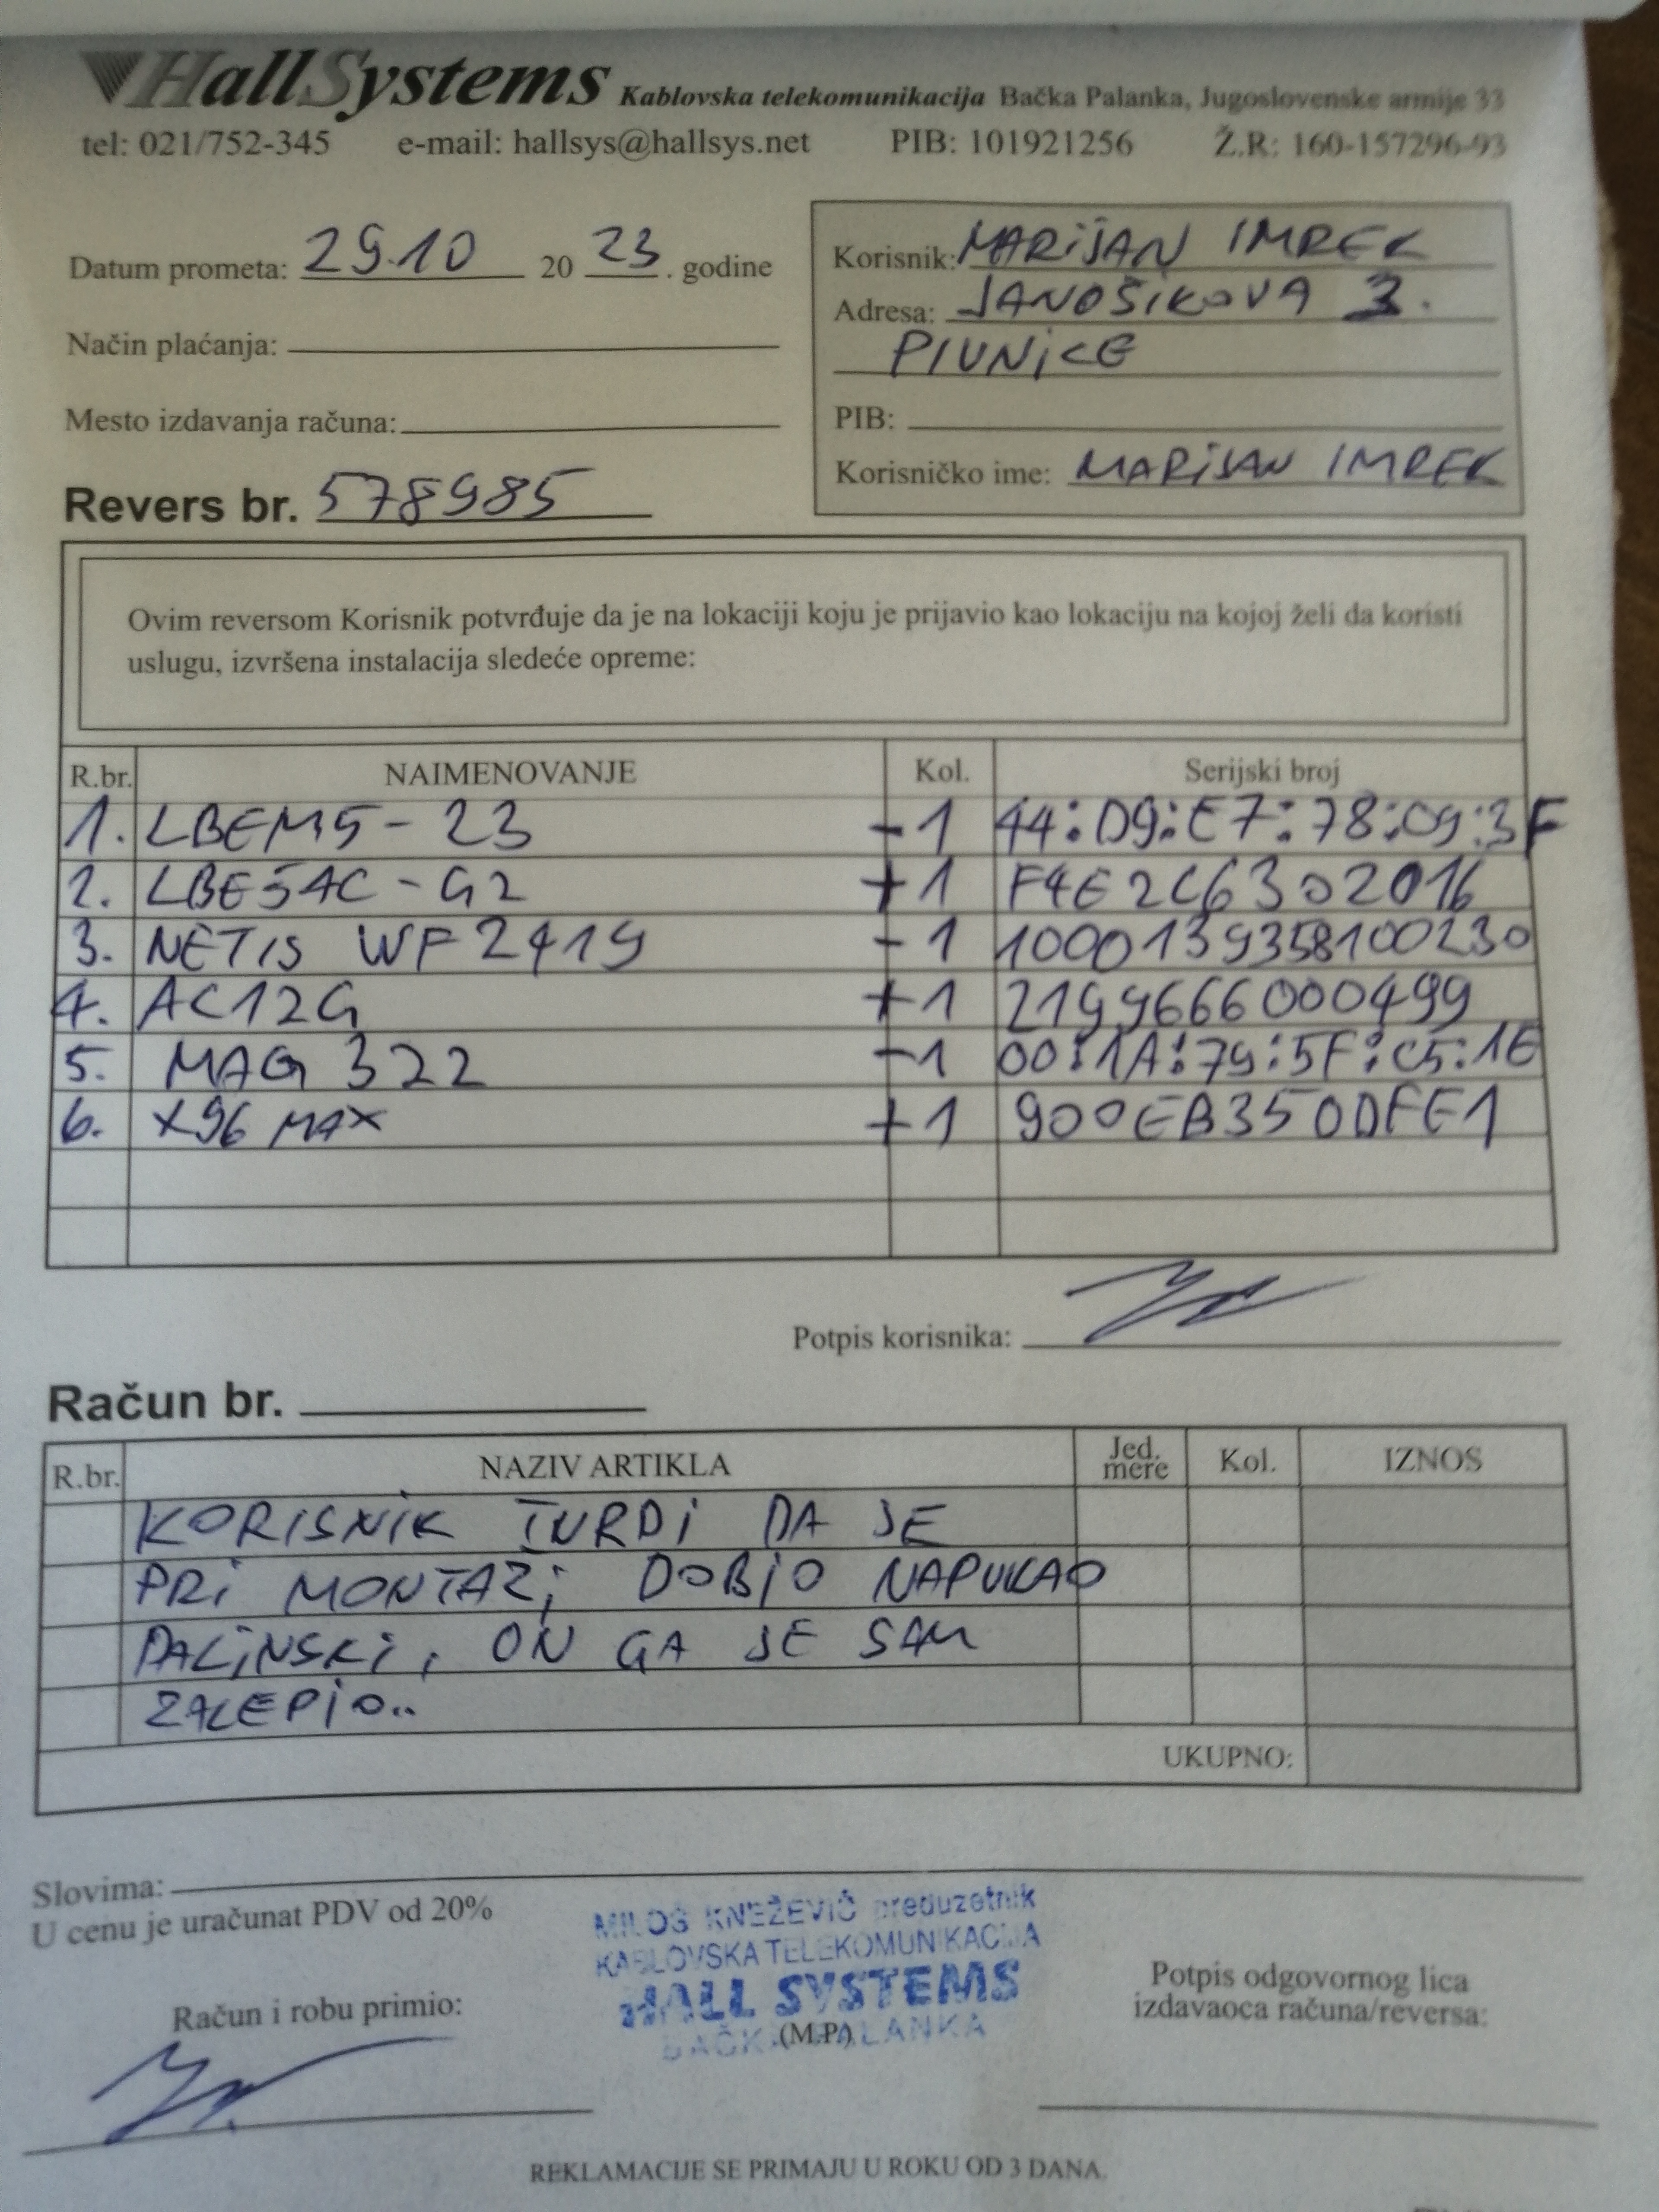 HallSystems Kablovska telekomunikacija Bačka Palanka, Jugoslovenske armije 33
tel: 021/752-345 e-mail: hallsys@hallsys.net PIB: 101921256 Ž.R: 160-157296-93
Datum prometa: 29.10 20 23. godine
Način plaćanja:
Mesto izdavanja računa:
Revers br. 578985
Korisnik: MARIJAN IMREK
Adresa: JANOŠIKOVA 3.
PIVNICE
PIB:
Korisničko ime: MARIJAN IMREK
Ovim reversom Korisnik potvrđuje da je na lokaciji koju je prijavio kao lokaciju na kojoj želi da koristi
uslugu, izvršena instalacija sledeće opreme:
R.br. NAIMENOVANJE Kol. Serijski broj
1. LBEM5-23 -1 44:D9:E7:78:C9:3F
2. LBE5AC-G2 +1 F4E2C6302016
3. NETIS WF2419 -1 1000139358100230
4. AC12G +1 2199666000499
5. MAG 322 -1 00:1A:79:5F:C5:1E
6. X96 MAX +1 900EB350DFE1
Potpis korisnika:
Račun br.
R.br. NAZIV ARTIKLA Jed. mere Kol. IZNOS
KORISNIK TVRDI DA JE
PRI MONTAZI DOBIO NAPUKAO
DALINSKI, ON GA JE SAM
ZALEPIO..
UKUPNO:
Slovima:
U cenu je uračunat PDV od 20%
MILOŠ KNEŽEVIĆ preduzetnik
KABLOVSKA TELEKOMUNIKACIJA
HALL SYSTEMS
BAČKA PALANKA
(M.P.)
Račun i robu primio:
Potpis odgovornog lica
izdavaoca računa/reversa:
REKLAMACIJE SE PRIMAJU U ROKU OD 3 DANA.